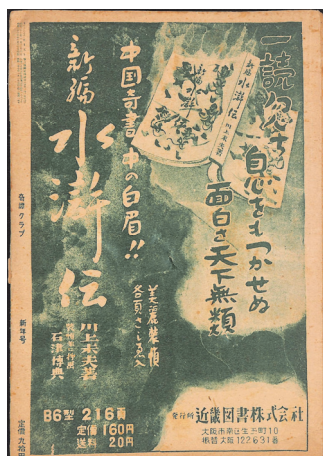 一読 息をもつかせぬ
面白さ天下無類
新編 水滸伝 川上末夫著
中国奇書中の白眉!!
新編
水滸伝
美麗装幀
川上末夫著
石津博典
B6型 216頁
定価 160円
送料 20円
発行所 近畿図書株式会社
大阪市南区生玉町10
振替大阪122631番
奇譚クラブ
新年号
定価九拾円